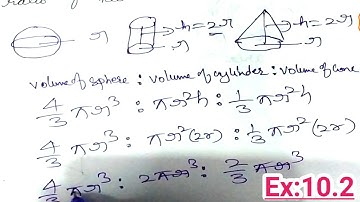 r h=2r r h=2r r
volume of sphere : volume of cylinder : volume of cone
4/3 πr³ : πr²h : 1/3 πr²h
4/3 πr³ : πr²(2r) : 1/3 πr²(2r)
4/3 πr³ : 2πr³ : 2/3 πr³
Ex:10.2